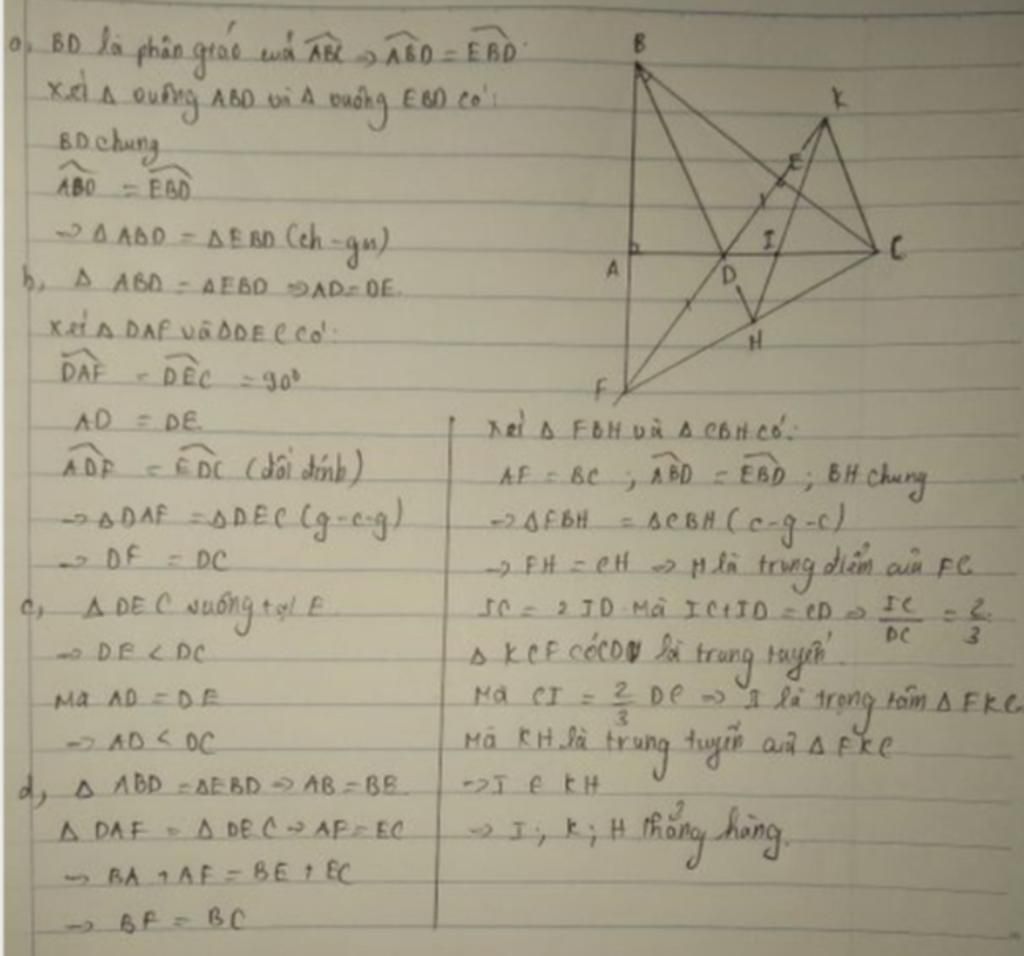 a, BD là phân giác củả ABC => ABD = EBD
Xét Δ vuông ABD và Δ vuông EBD có:
BD chung
ABD = EBD
-> Δ ABD = Δ EBD (ch-gn)
b, Δ ABD = Δ EBD => AD = DE.
Xét Δ DAF và Δ DEC có:
DAF = DEC = 90°
AD = DE
ADF = EDC (đối đỉnh)
-> Δ DAF = Δ DEC (g-c-g)
-> DF = DC
c, Δ DEC vuông tại E
-> DE < DC
Mà AD = DE
-> AD < DC
d, Δ ABD = Δ EBD => AB = BE
Δ DAF = Δ DEC -> AF = EC
-> BA + AF = BE + EC
-> BF = BC
Xét Δ FBH và Δ CBH có:
AF = BC ; ABD = EBD ; BH chung
-> Δ FBH = Δ CBH (c-g-c)
-> FH = CH => H là trung điểm của FC
IC = 2 ID. Mà IC + ID = CD => IC/DC = 2/3
Δ KCF có CD là trung tuyến.
Mà CI = 2/3 DC => I là trọng tâm Δ FKC
Mà KH là trung tuyến củả Δ FKC
-> I ∈ KH
-> I; K; H thẳng hàng.
B
K
E
A
D
I
C
H
F